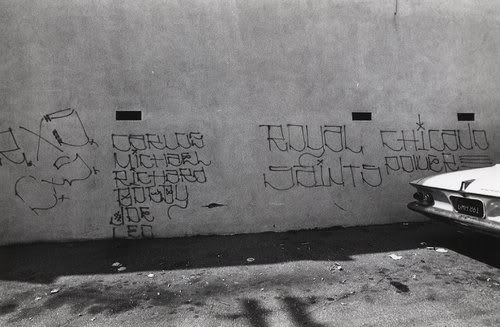 CARLOS
MICHAEL
RICHARD
BOBBY
JOE
LEO
ROYAL
SAINTS
CHICANO
POWER